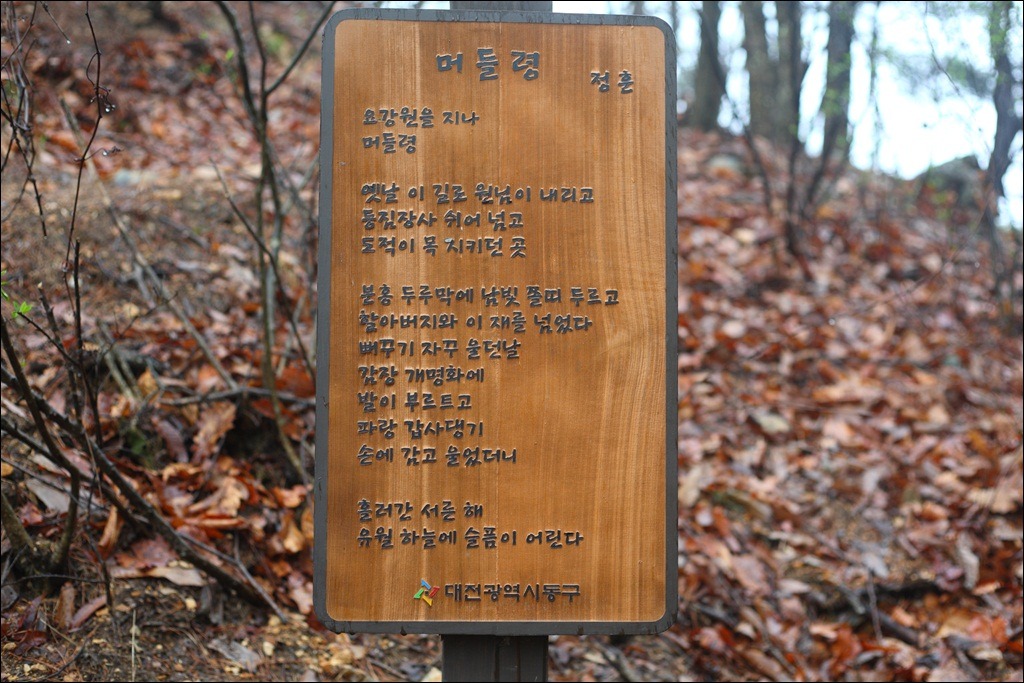 머들령
정훈
요강원을 지나
머들령
옛날 이 길로 원님이 내리고
등짐장사 쉬어 넘고
도적이 목 지키던 곳
분홍 두루막에 남빛 쫄띠 두르고
할아버지와 이 재를 넘었다
뻐꾸기 자꾸 울던날
감장 개명화에
발이 부르트고
파랑 갑사댕기
손에 감고 울었더니
흘러간 서른 해
유월 하늘에 슬픔이 어린다
대전광역시동구